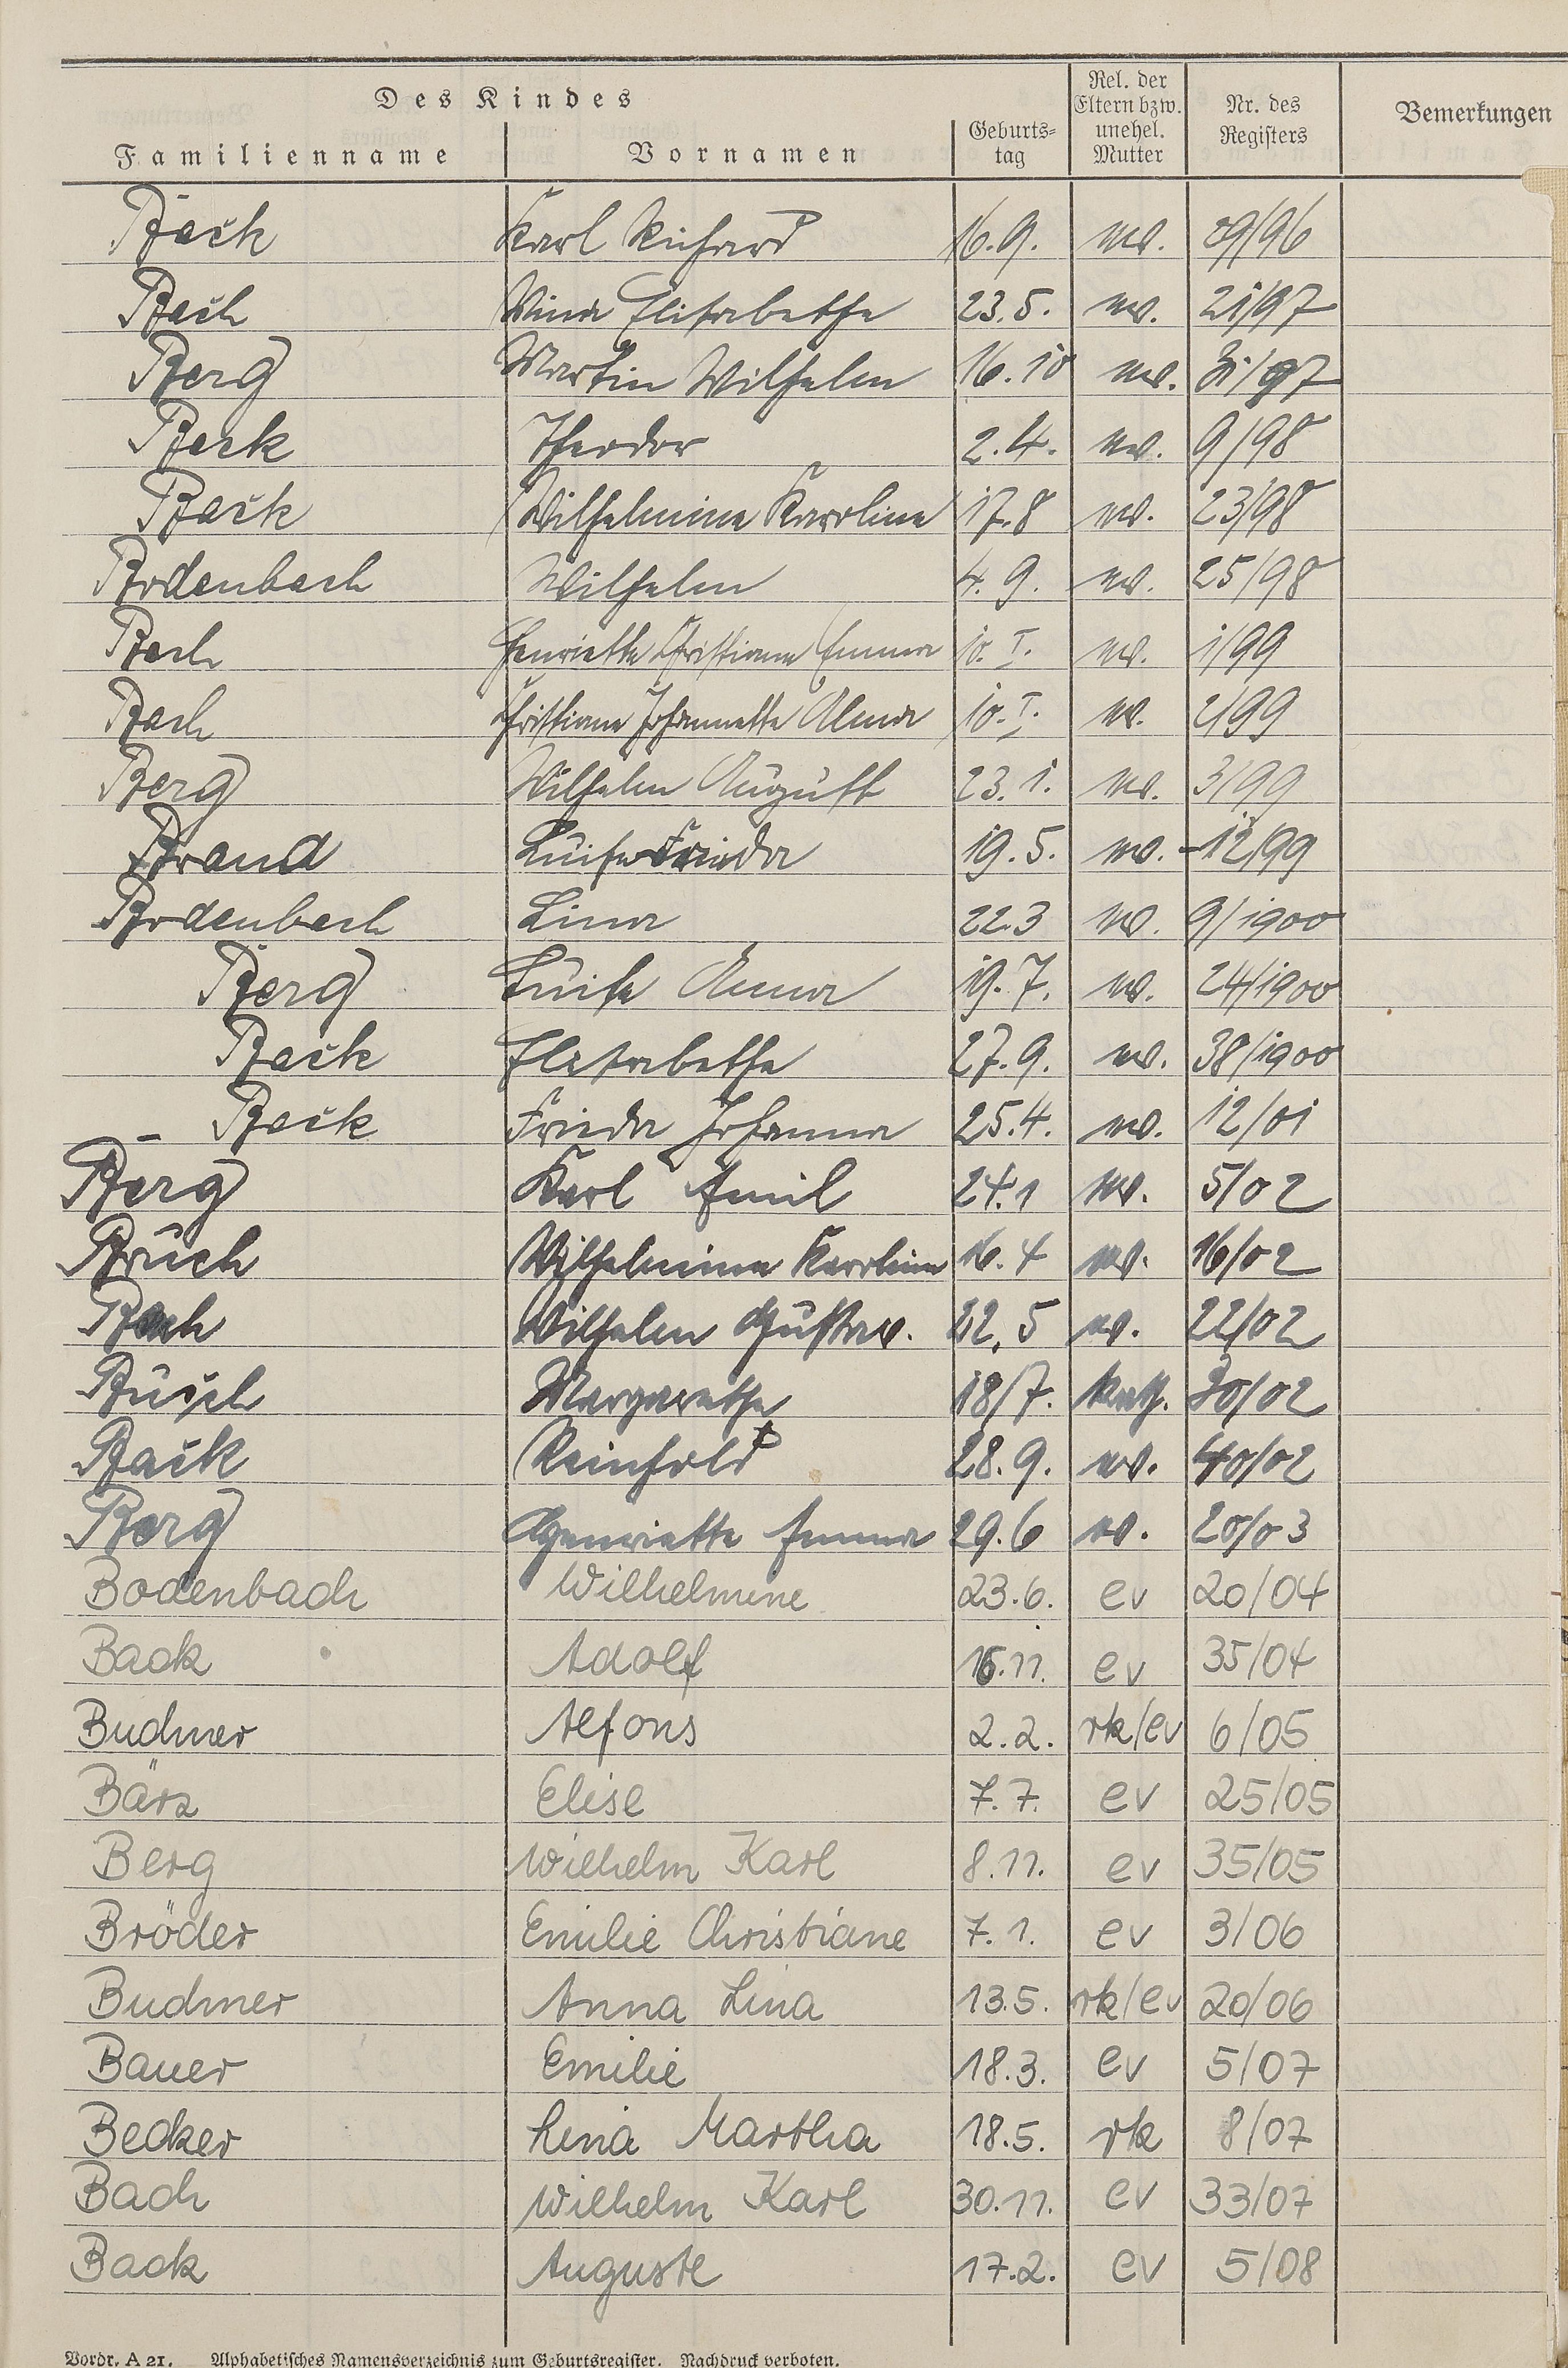 Des Kindes
Familienname Vornamen Geburtstag Rel. der Eltern bzw. unehel. Mutter Nr. des Registers Bemerkungen
Back Karl Richard 16.9. ev. 29/96
Bach Mina Elisabethe 23.5. ev. 21/97
Berg Martin Wilhelm 16.10 ev. 31/97
Back Theodor 2.4. ev. 9/98
Back Wilhelmine Karoline 17.8 ev. 23/98
Bodenbach Wilhelm 4.9. ev. 25/98
Bach Henriette Christiane Emma 10.I. ev. 1/99
Bach Christiane Johannette Alma 10.I. ev. 2/99
Berg Wilhelm August 23.1. ev. 3/99
Brand Luise Frieda 19.5. ev. 12/99
Bodenbach Lina 22.3 ev. 9/1900
Berg Luise Anna 19.7. ev. 24/1900
Back Elisabethe 27.9. ev. 38/1900
Back Frieda Johanna 25.4. ev. 12/01
Berg Karl Emil 24.1 ev. 5/02
Bruch Wilhelmine Karoline 16.4 ev. 16/02
Bach Wilhelm Gustav. 22.5 ev. 22/02
Busch Margarethe 18/7. kath. 30/02
Back Reinhold 28.9. ev. 40/02
Berg Henriette Emma 29.6 ev. 20/03
Bodenbach Wilhelmine 23.6. ev 20/04
Back Adolf 16.11. ev 35/04
Buchner Alfons 2.2. rk/ev 6/05
Bärz Elise 7.7. ev 25/05
Berg Wilhelm Karl 8.11. ev 35/05
Bröder Emilie Christiane 7.1. ev 3/06
Buchner Anna Lina 13.5. rk/ev 20/06
Bauer Emilie 18.3. ev 5/07
Becker Lina Martha 18.5. rk 8/07
Bach Wilhelm Karl 30.11. ev 33/07
Back Auguste 17.2. ev 5/08
Vordr. A 21. Alphabetisches Namensverzeichnis zum Geburtsregister. Nachdruck verboten.